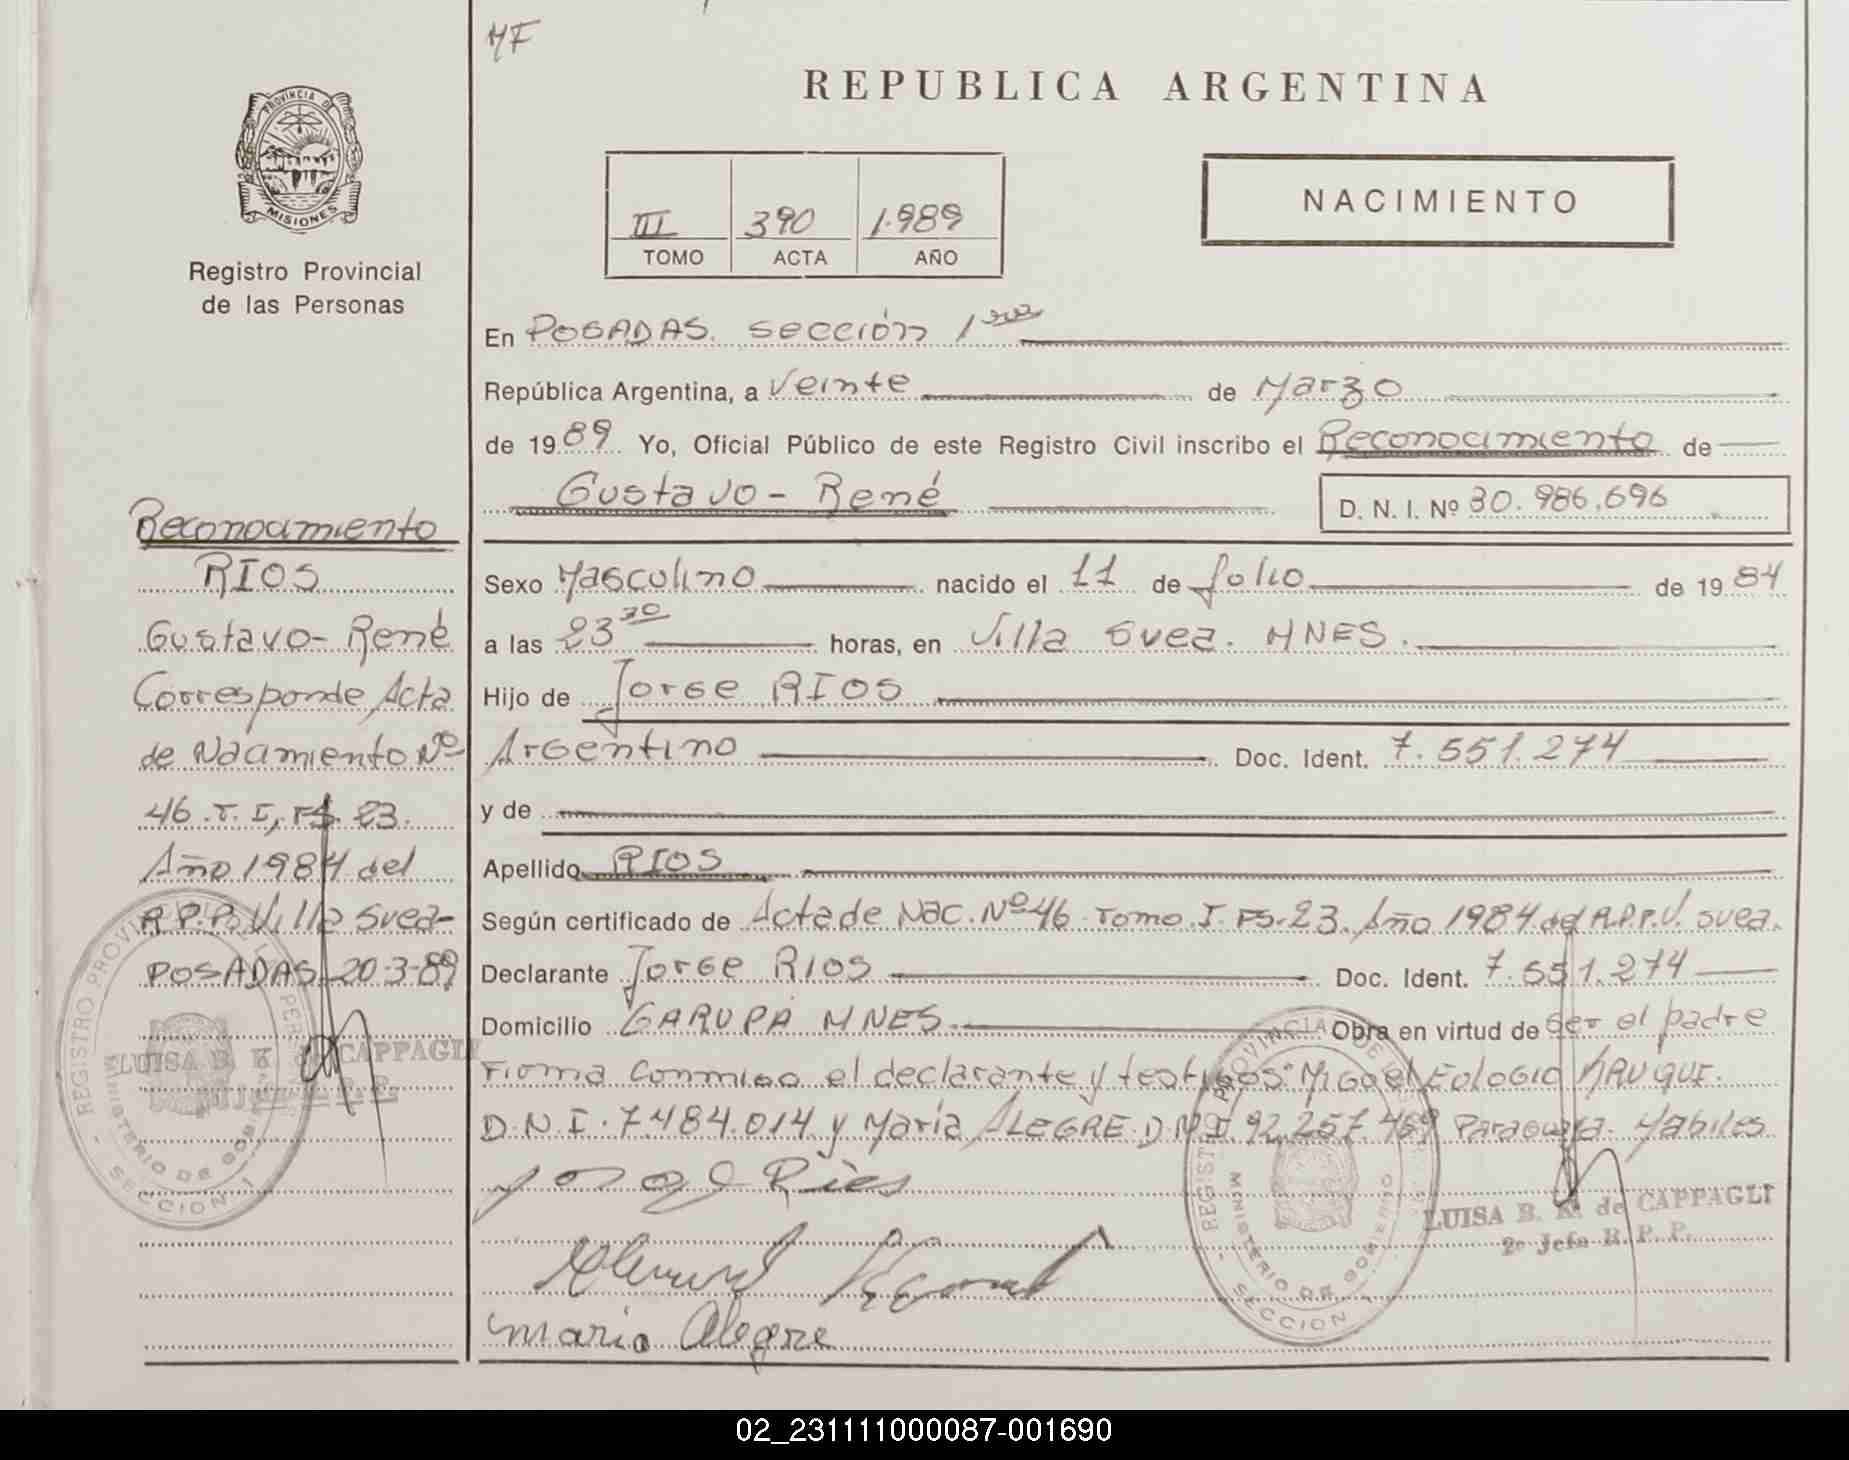 MF
REPUBLICA ARGENTINA
PROVINCIA DE
MISIONES
III 390 1.989
TOMO ACTA AÑO
NACIMIENTO
Registro Provincial
de las Personas
En POSADAS. sección 1ra
República Argentina, a Veinte de Marzo
de 1989. Yo, Oficial Público de este Registro Civil inscribo el Reconocimiento de
Gustavo - René
D. N. I. Nº 30.986.696
Sexo Masculino nacido el 11 de Julio de 1984
a las 23 30 horas, en Villa Svea. MNES.
Hijo de Jorge RIOS
Argentino Doc. Ident. 7.551.274
y de
Apellido RIOS
Según certificado de Acta de Nac. Nº 46 Tomo. I. Fs. 23. Año 1984 del R.P.P. V. Svea.
Declarante Jorge RIOS Doc. Ident. 7.551.274
Domicilio GARUPA MNES. Obra en virtud de ser el padre
Firma conmigo el declarante y testigos: Miguel Eulogio
D.N.I. 7.484.014 y María ALEGRE D.N.I. 92.257.469 Paraguaya. Habiles
Jorge Rios
Maria Alegre
LUISA B. K. de CAPPAGLI
2º Jefe R. P. P.
REGISTRO PROVINCIAL DE LAS PERSONAS
MINISTERIO DE GOBIERNO
SECCION 1
Reconocimiento
RIOS
Gustavo - René
Corresponde Acta
de Nacimiento Nº
46. T. I, Fs. 23.
Año 1984 del
R.P.P. Villa Svea-
POSADAS 20-3-89
LUISA B. K. de CAPPAGLI
REGISTRO PROVINCIAL DE LAS PERSONAS
MINISTERIO DE GOBIERNO
SECCION 1
02_231111000087-001690